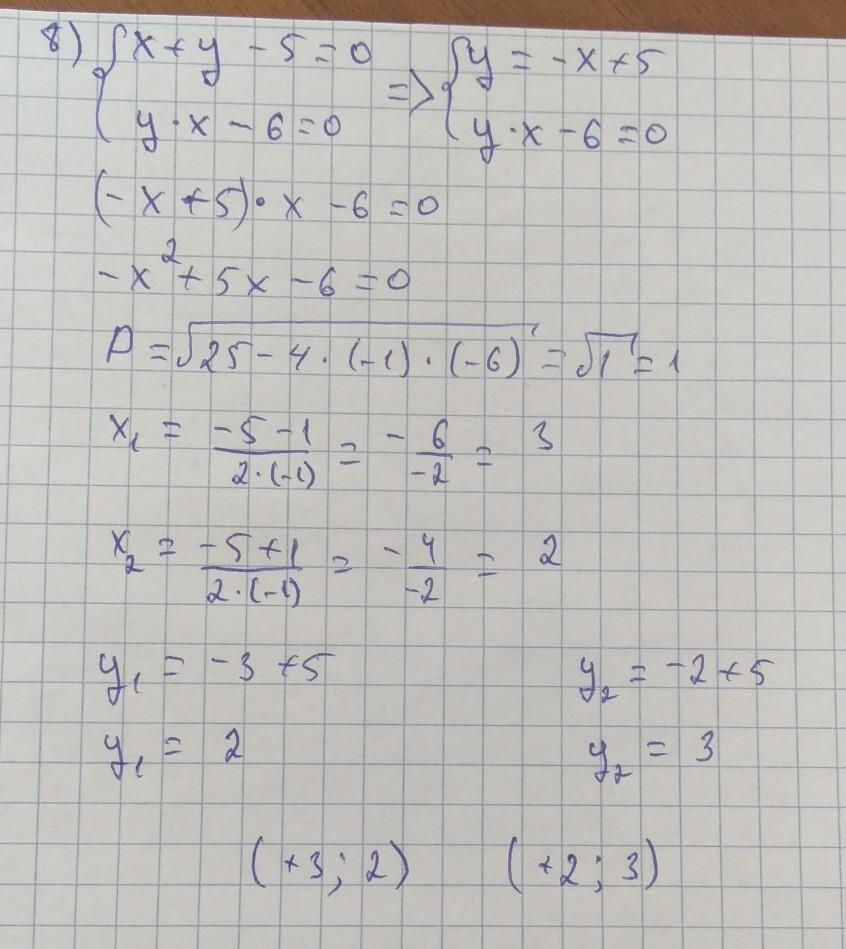 8) { x + y - 5 = 0 => { y = -x + 5
y · x - 6 = 0 y · x - 6 = 0
(- x + 5) · x - 6 = 0
- x² + 5x - 6 = 0
D = √25 - 4 · (-1) · (-6) = √1 = 1
x₁ = (-5 - 1)/(2 · (-1)) = - 6/-2 = 3
x₂ = (-5 + 1)/(2 · (-1)) = - 4/-2 = 2
y₁ = -3 + 5 y₂ = -2 + 5
y₁ = 2 y₂ = 3
(+3; 2) (+2; 3)